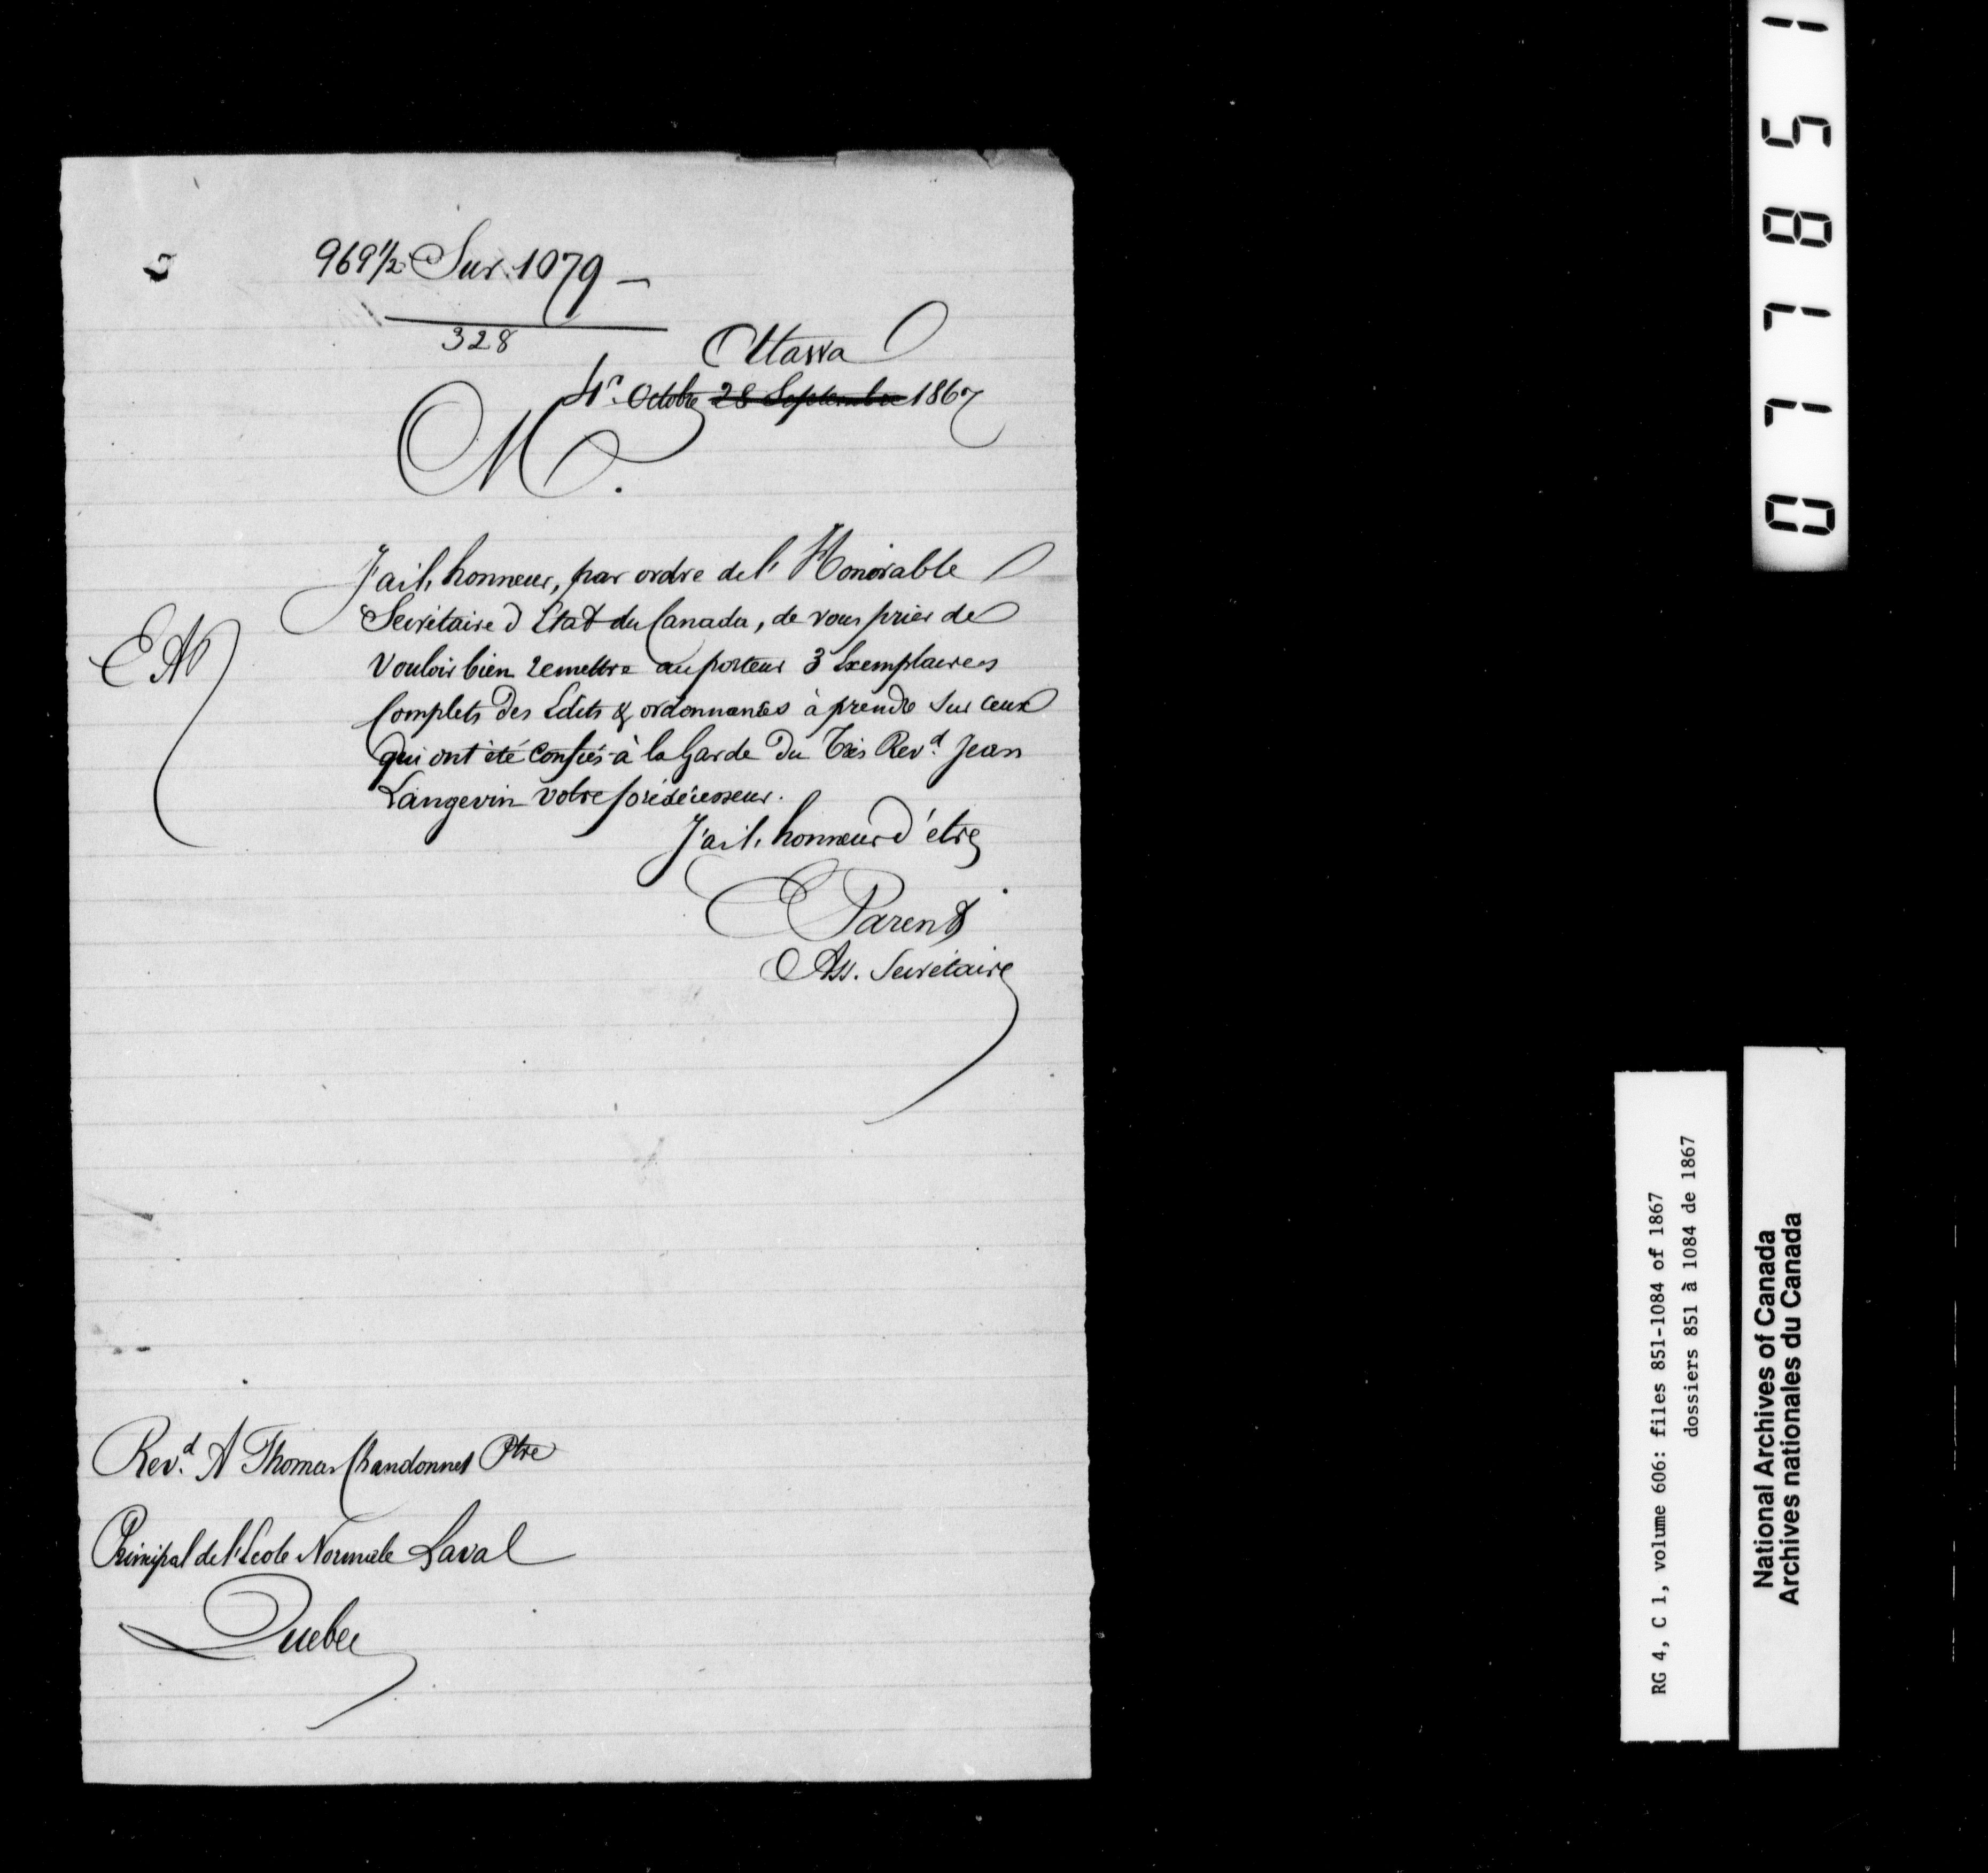 969 1/2 Sur 1079 —
328
Ottawa
4 Octobre 28 Septembre 1867
M.
J'ai l'honneur, par ordre de l'Honorable
Secrétaire d'Etat du Canada, de vous prier de
vouloir bien remettre au porteur 3 Exemplaires
Complets des Edits & ordonnances à prendre sur ceux
qui ont été confiés à la Garde du Très Revd. Jean
Langevin votre prédécesseur.
J'ai l'honneur d'être
E Parent
Ass. Secrétaire
Revd. A Thomas Chandonnet Ptre
Principal de l'Ecole Normale Laval
Quebec
077851
RG 4, C 1, volume 606: files 851-1084 of 1867
dossiers 851 à 1084 de 1867
National Archives of Canada
Archives nationales du Canada